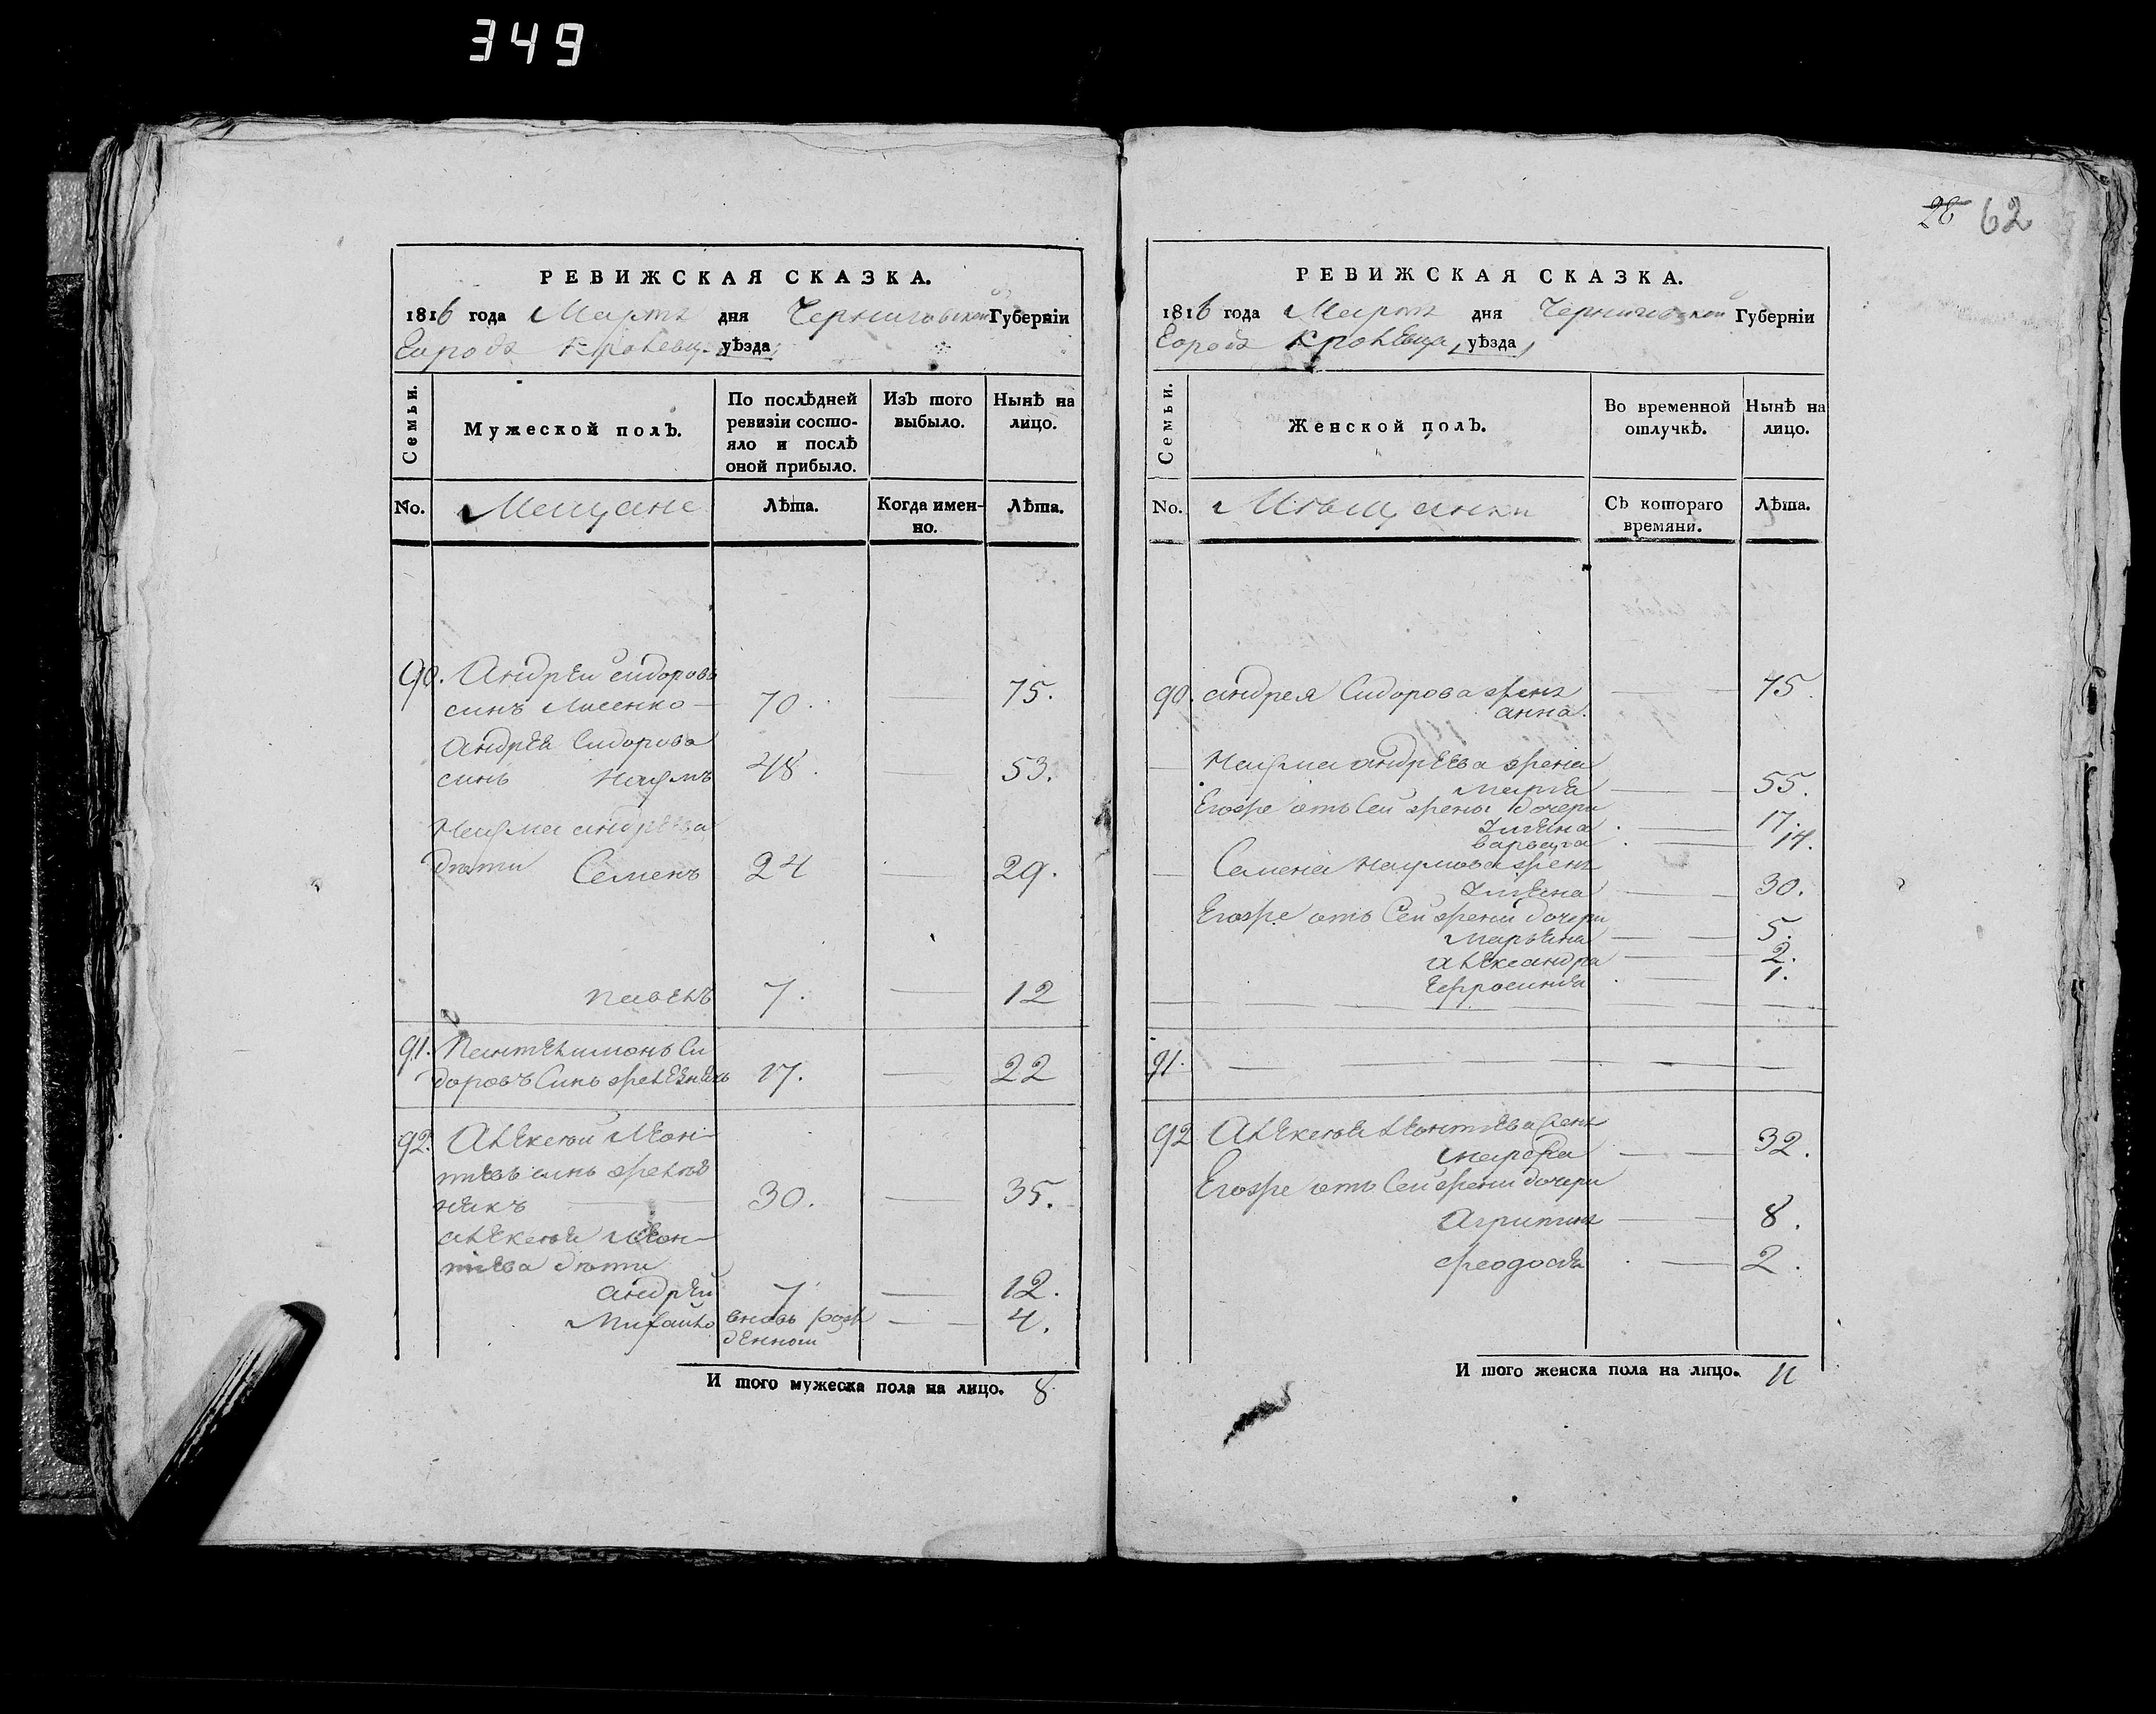 349
28 62
РЕВИЖСКАЯ СКАЗКА.
1816 года Марта дня Черниговской Губерніи
Города Кролевца, уѣзда
Семьи.
Мужеской полъ.
По послѣдней ревизіи состояло и послѣ оной прибыло.
Изъ того выбыло.
Нынѣ на лицо.
No.
Мещане
Лѣта.
Когда именно.
Лѣта.
90. Андрей Сидоровъ
синъ Лисенко — 70. — 75.
Андрея Сидорова
синъ Наумъ 48. 53.
Наума Андреева
дѣти Семенъ 24 — 29.
Павелъ 7. — 12
91. Пантелимонъ Си
доровъ Синъ 17. — 22
92. Алексѣй Леон-
тиевъ синъ
някъ — 30. — 35.
Алексѣя Леон-
тиева дѣти
Андрей 7. — 12.
Михайло вновь рож — 4.
денной
И того мужеска пола на лицо. 8.
РЕВИЖСКАЯ СКАЗКА.
1816 года Марта дня Черниговской Губерніи
Города Кролевца, уѣзда
Семьи.
Женской полъ.
Во временной отлучкѣ.
Нынѣ на лицо.
No.
Мѣщанки
Съ котораго времяни.
Лѣта.
90. Андрея Сидорова жена — 75.
анна.
Наума андреева жена
Мария — 55.
Егоже отъ Сей жены дочери
17.
Варвара — 14.
Семена Наумова жена
30.
Егоже отъ Сей жени дочери
Марьяна — 5.
Александра — 2.
Ефросиния — 1.
91. — — —
92 Алексѣя Леонтиева жена
Марфа — 32.
Егоже отъ Сей жени дочери
Агрипина — 8.
Феодосия — 2.
И того женска пола на лицо. 11